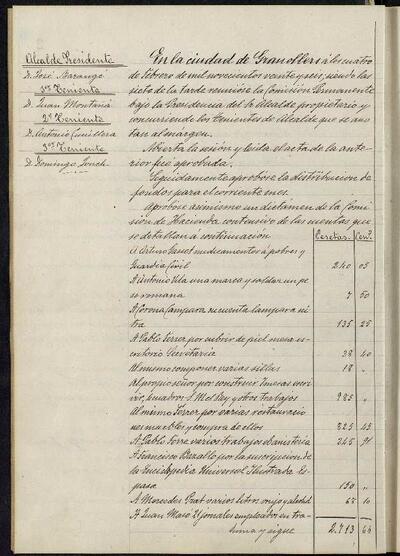 Alcalde Presidente
D. José Barangó
1er Teniente
D. Juan Montañá
2º Teniente
D. Antonio Cumillera
3er Teniente
D. Domingo
En la ciudad de Granollers á los cuatro
de Febrero de mil novecientos veinte y seis, siendo las
siete de la tarde reunióse la Comisión Permanente
bajo la Presidencia del Sr Alcalde propietario y
concurriendo los Tenientes de Alcalde que se ano
tan al margen.
Abierta la sesión y leida el acta de la ante
rior fué aprobada.
Seguidamente apruébase la distribución de
fondos para el corriente mes.
Apruébase asimismo un dictamen de la Comi
sión de Hacienda contentivo de las cuentas que
se detallan á continuación
Pesetas. Cents.
A Arturo medicamentos á pobres y
Guardia Civil 240 05
A Antonio Vila una marca y soldar un pe
so romana 7 50
A Corona Lampara su cuenta lampara ni
tra 135 25
A Pablo Ferrer por cubrir de piel mesa es
critorio Secretaria 28 40
Al mismo componer varias sillas 18 "
Al propio señor por construir mesas escri
vir, cuadros S. M. el Rey y otros trabajos 985 "
Al mismo Ferrer por varias restauracio
nes muebles y compra de ellos 325 45
A Pablo Torre varios trabajos ebanisteria 345 91
A Francisco Barallo por la suscripcion de
la Enciclopedia Universal Ilustrada Es
pasa 130 "
A Mercedes Grat varios litros y alcohol 65 10
A Juan Masó 21 jornales empleados en tra
suma y sigue 2.713 66